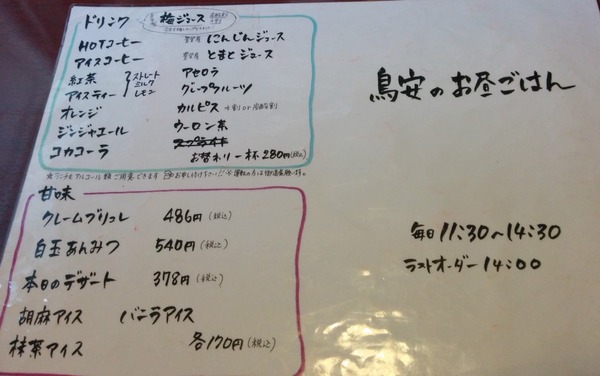 ドリンク
梅ジュース
HOTコーヒー
にんじんジュース
アイスコーヒー
とまとジュース
紅茶
アイスティー
ストレート
ミルク
レモン
アセロラ
グレープフルーツ
オレンジ
カルピス 水割 or
ジンジャエール
ウーロン茶
コカコーラ
お替わり一杯 280円(税込)
甘味
クレームブリュレ 486円(税込)
白玉あんみつ 540円(税込)
本日のデザート 378円(税込)
胡麻アイス バニラアイス
抹茶アイス 各170円(税込)
鳥安のお昼ごはん
毎日 11:30～14:30
ラストオーダー 14:00